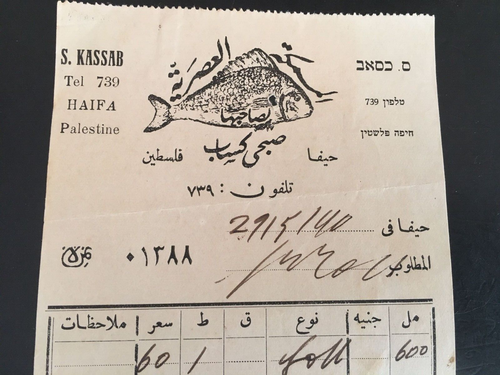 S. KASSAB
Tel 739
HAIFA
Palestine
العصرية
لصاحبها
صبحي كساب
حيفا فلسطين
تلفون : ٧٣٩
ס. כסאב
טלפון 739
חיפה פלשתין
حيفا في 29/5/
المطلوب
نمرة ٠١٣٨٨
مل جنيه نوع ق ط سعر ملاحظات
600 1 60